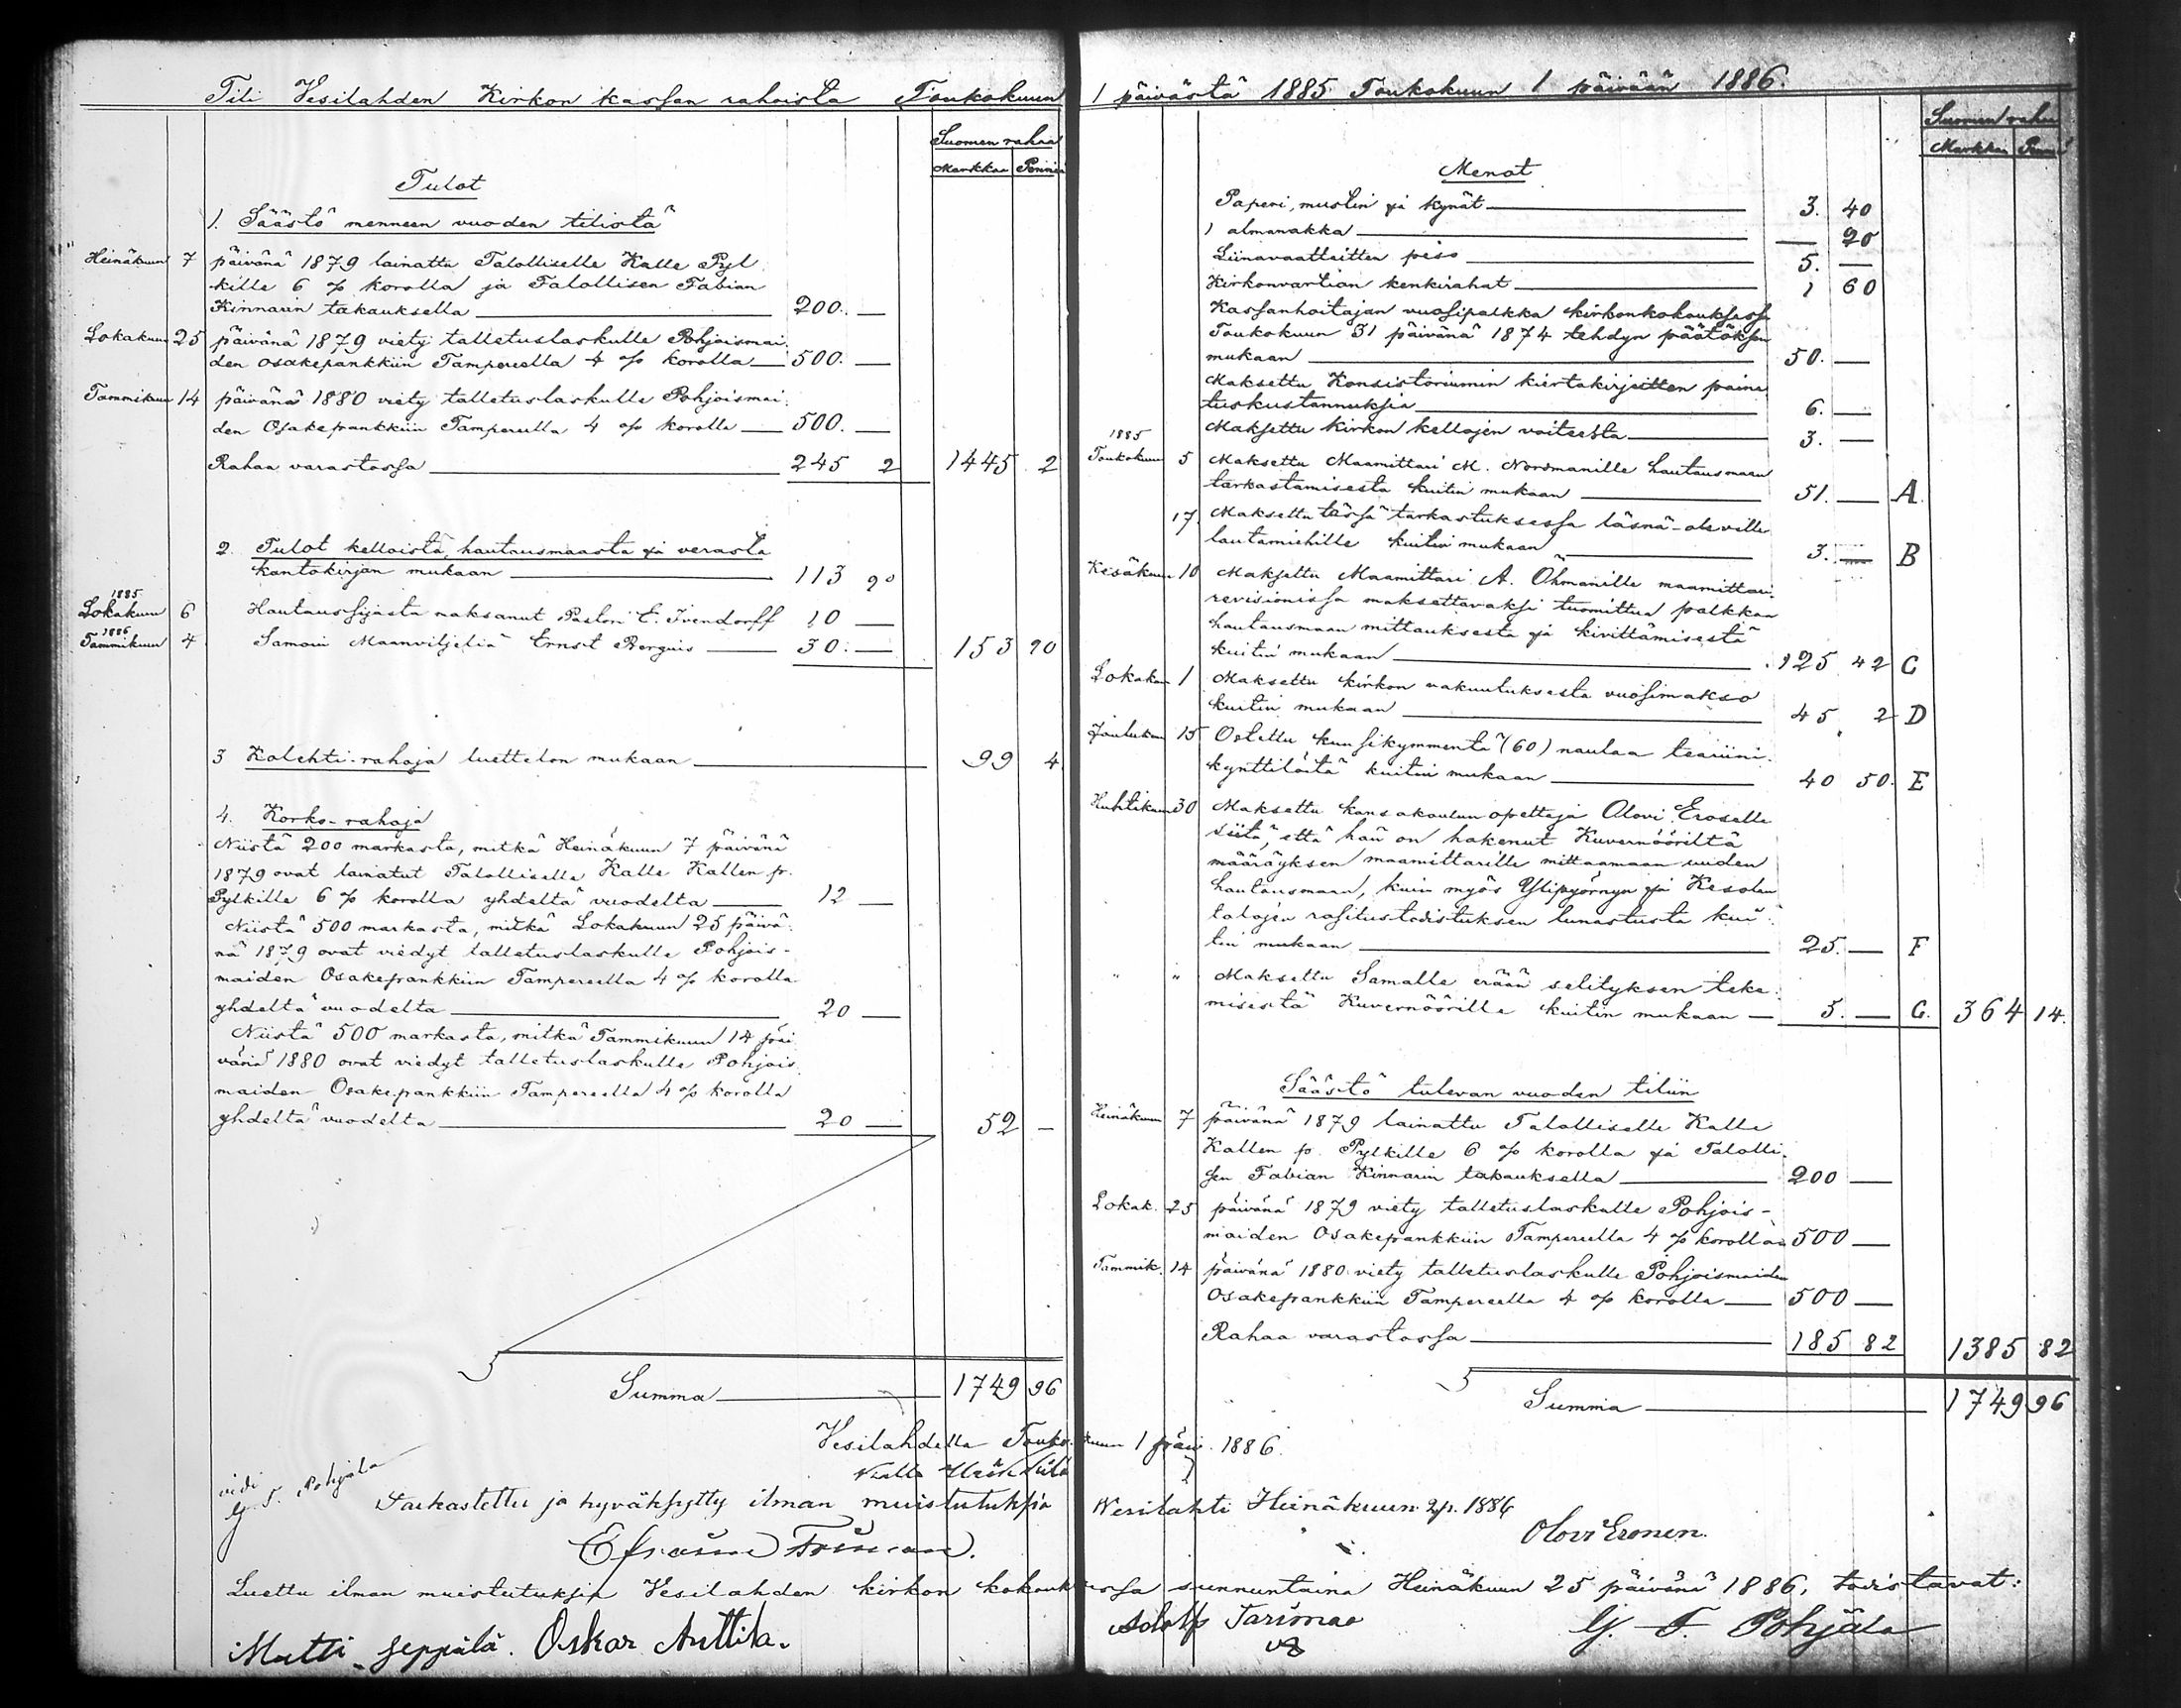 Tili Vesilahden Kirkon kassan rahoista Toukokuun 1 päivästä 1885 Toukokuun 1 päivään 1886.
Suomen rahaa
Markkaa Penniä
Tulot
1. Säästö menneen vuoden tilistä
Heinäkuun 7 päivänä 1879 lainattu Talolliselle Kalle Pyl
kille 6 % korolla ja Talollisen Fabian
Kinnarin takauksella 200. —
Lokakuun 25 päivänä 1879 viety talletuslaskulle Pohjoismai
den osakepankkiin Tampereella 4 % korolla 500. —
Tammikuun 14 päivänä 1880 viety talletuslaskulle Pohjoismai
den Osakepankkiin Tampereella 4 % korolla 500. —
Rahaa varastossa 245 2 1445 2
2. Tulot kelloista, hautausmaasta ja verasta
kantokirjan mukaan 113 90
1885
Lokakuun 6 Hautaussijasta maksanut Pastori E. Ivendorff 10 —
1886
Tammikuun 4 Samoin Maanviljeliä Ernst Bergius 30. — 153 90
3 Kolehti-rahoja luettelon mukaan 99 4
4. Korko-rahoja
Niistä 200 markasta, mitkä Heinäkuun 7 päivänä
1879 ovat lainatut Talolliselle Kalle Kallen p.
Pylkille 6 % korolla yhdeltä vuodelta 12 —
Niistä 500 markasta, mitkä Lokakuun 25 päivä
nä 1879 ovat viedyt talletuslaskulle Pohjois-
maiden Osakepankkiin Tampereella 4 % korolla
yhdeltä vuodelta 20 —
Niistä 500 markasta, mitkä Tammikuun 14 päi
vänä 1880 ovat viedyt talletuslaskulle Pohjois
maiden Osakepankkiin Tampereella 4 % korolla
yhdeltä vuodelta 20 — 52 —
Summa 1749 96
Suomen rahaa
Markkaa Penniä
Menot
Paperi, mustin ja kynät 3. 40
1 almanakka — 20
Liinavaatteitten peso 5. —
Kirkonvartian kenkirahat 1 60
Kassanhoitajan vuosipalkka kirkonkokouksessa
Toukokuun 31 päivänä 1874 tehdyn päätöksen
mukaan 50. —
Maksettu Konsistoriumin kiertokirjeitten paina
tuskustannuksia 6. —
Maksettu kirkon kellojen voiteesta 3. —
1885
Toukokuun 5 Maksettu Maamittari M. Nordmanille hautausmaan
tarkastamisesta kuitin mukaan 51. — A.
17. Maksettu tässä tarkastuksessa läsnä-oleville
lautamiehille kuitin mukaan 3. — B
Kesäkuun 10 Maksettu Maamittari A. Öhmanille maamittari
revisionissa maksettavaksi tuomittua palkkaa
hautausmaan mittauksesta ja kivittämisestä
kuitin mukaan 125 42 C
Lokakuun 1 Maksettu kirkon vakuutuksesta vuosimakso
kuitin mukaan 45 2 D
Joulukuun 15 Ostettu kuusikymmentä (60) naulaa teariini-
kynttilöitä kuitin mukaan 40 50. E
Huhtikuun 30 Maksettu kansakoulun opettaja Olovi Eroselle
siitä, että hän on hakenut Kuvernööriltä
määräyksen maamittarille mittaamaan uuden
hautausmaan, kuin myös Ylipyörnyn ja Kesolan
talojen rasitustodistuksen lunastusta kui-
tin mukaan 25. — F
" " Maksettu Samalle erään selityksen teke-
misestä Kuvernöörille kuitin mukaan 5. — G. 364 14.
Säästö tulevan vuoden tiliin
Heinäkuun 7 päivänä 1879 lainattu Talolliselle Kalle
Kallen p. Pylkille 6 % korolla ja Talolli-
sen Fabian Kinnarin takauksella 200 —
Lokak. 25 päivänä 1879 viety talletuslaskulle Pohjois-
maiden Osakepankkiin Tampereella 4 % korolla 500 —
Tammik. 14 päivänä 1880 viety talletuslaskulle Pohjoismaiden
Osakepankkiin Tampereella 4 % korolla 500 —
Rahaa varastossa 185 82 1385 82
Summa 1749 96
Vesilahdella Toukokuun 1 päiv. 1886.
Kalle
vidi
G. F. Pohjala
Tarkastettu ja hyväksytty ilman muistutuksia Wesilahti Heinäkuun 2 p. 1886
Olovi Eronen.
Luettu ilman muistutuksia Vesilahden kirkon kokouksessa sunnuntaina Heinäkuun 25 päivänä 1886, todistavat:
Matti Seppälä. Oskar Anttila. Adolf Tarimaa G. F. Pohjala